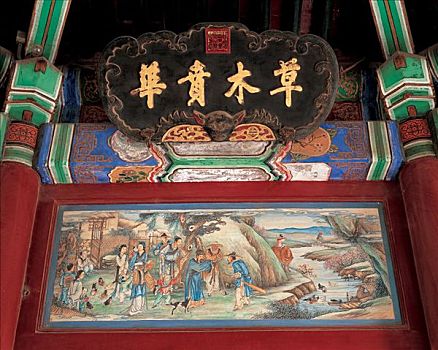 草木賁華